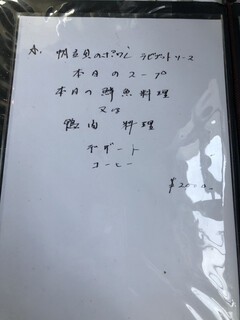 帆立貝のポワレ ラビゴットソース
本日のスープ
本日の鮮魚料理
又は
鴨肉料理
デザート
コーヒー